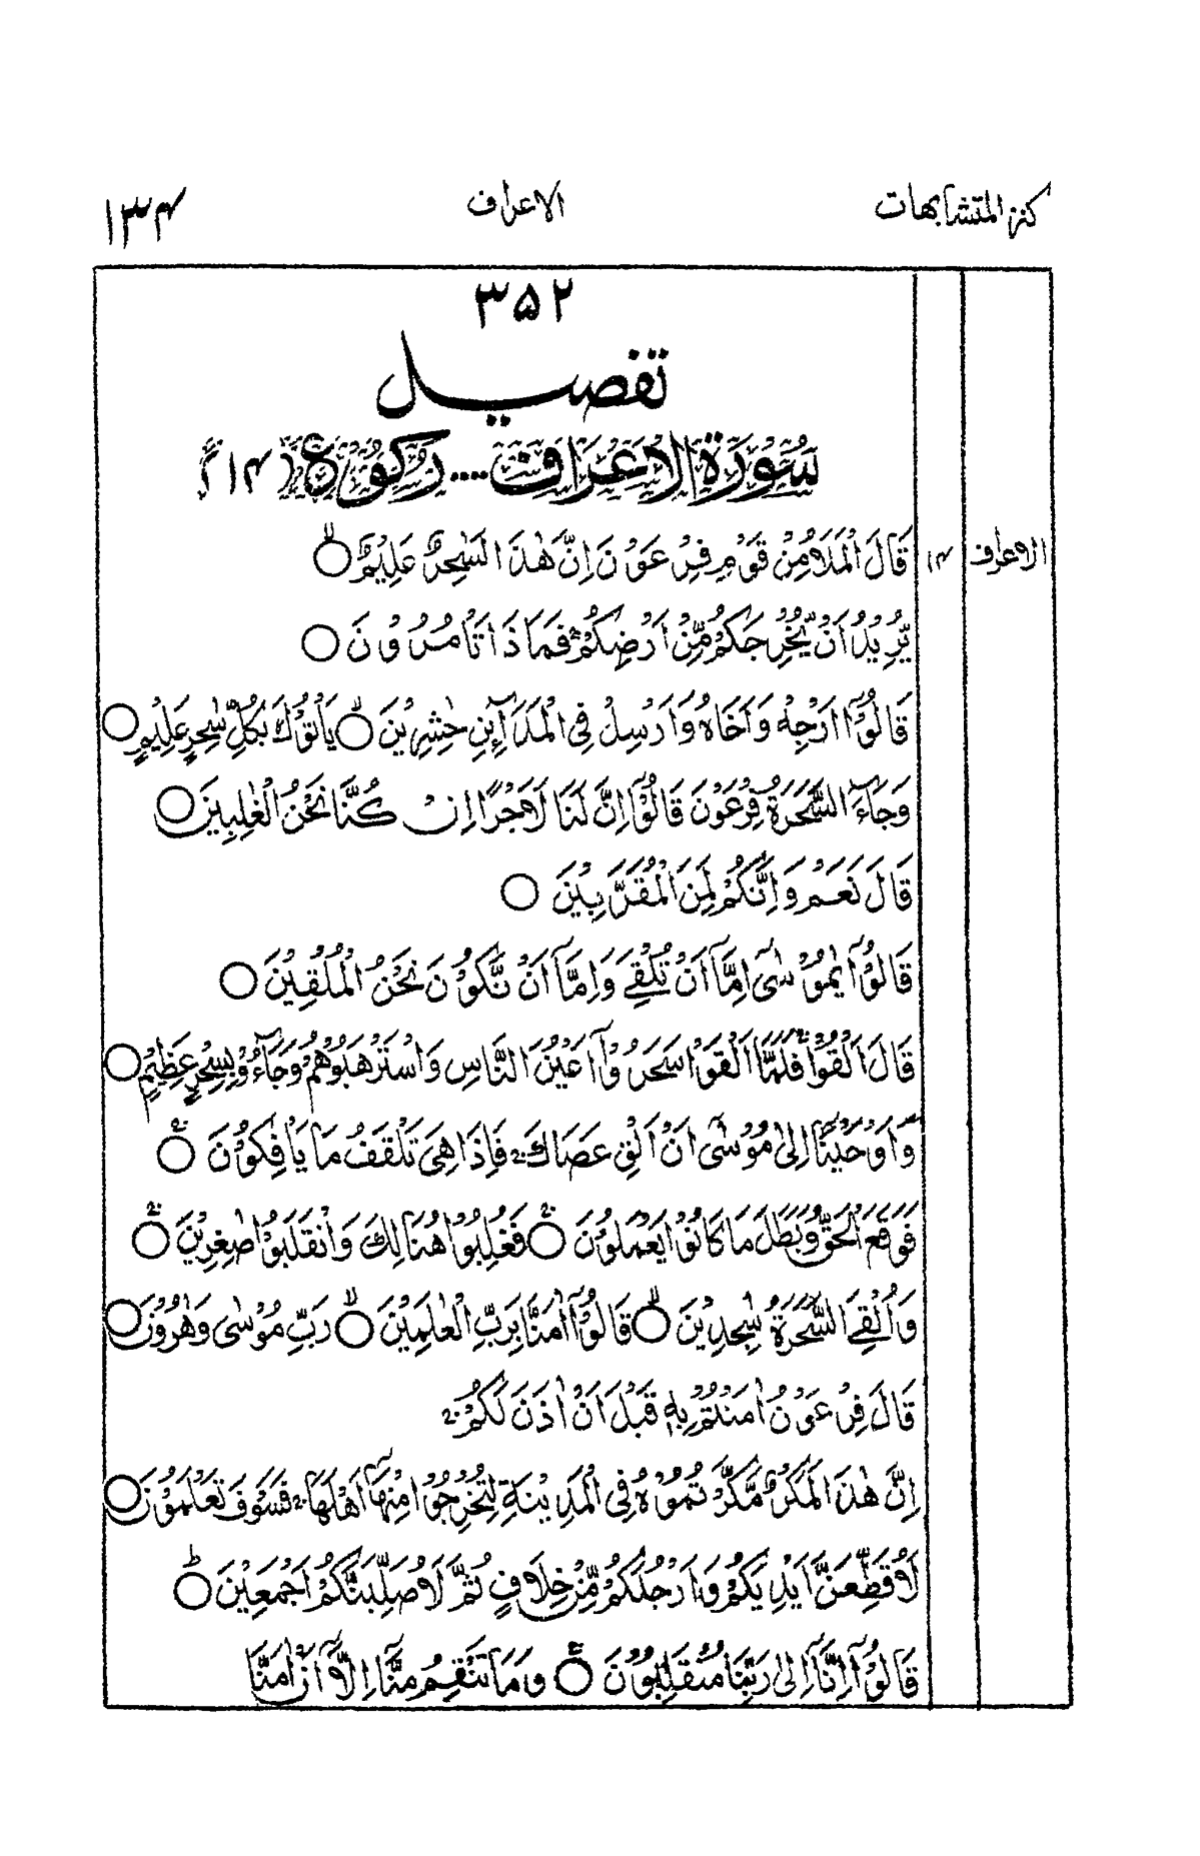 كنز المتشابهات
الاعراف
۱۳۴
۳۵۲
تفصیل
سُوْرَةُ الْاَعْرَاف .... رکوع (۱۴)
الاعراف
۱۴
قَالَ الْمَلَاُ مِنْ قَوْمِ فِرْعَوْنَ اِنَّ هٰذَا لَسٰحِرٌ عَلِيْمٌ ۙ○
يُّرِيْدُ اَنْ يُّخْرِجَكُمْ مِّنْ اَرْضِكُمْ ۚ فَمَا ذَا تَاْمُرُوْنَ ○
قَالُوْٓا اَرْجِهْ وَاَخَاهُ وَاَرْسِلْ فِى الْمَدَآئِنِ حٰشِرِيْنَ ۙ○ يَاْتُوْكَ بِكُلِّ سٰحِرٍ عَلِيْمٍ ○
وَجَآءَ السَّحَرَةُ فِرْعَوْنَ قَالُوْٓا اِنَّ لَنَا لَاَجْرًا اِنْ كُنَّا نَحْنُ الْغٰلِبِيْنَ ○
قَالَ نَعَمْ وَاِنَّكُمْ لَمِنَ الْمُقَرَّبِيْنَ ○
قَالُوْا يٰمُوْسٰٓى اِمَّآ اَنْ تُلْقِىَ وَاِمَّآ اَنْ نَّكُوْنَ نَحْنُ الْمُلْقِيْنَ ○
قَالَ اَلْقُوْا ۚ فَلَمَّآ اَلْقَوْا سَحَرُوْٓا اَعْيُنَ النَّاسِ وَاسْتَرْهَبُوْهُمْ وَجَآءُوْ بِسِحْرٍ عَظِيْمٍ ○
وَاَوْحَيْنَآ اِلٰى مُوْسٰٓى اَنْ اَلْقِ عَصَاكَ ۚ فَاِذَا هِىَ تَلْقَفُ مَا يَاْفِكُوْنَ ○ۚ
فَوَقَعَ الْحَقُّ وَبَطَلَ مَا كَانُوْا يَعْمَلُوْنَ ○ۚ فَغُلِبُوْا هُنَالِكَ وَانْقَلَبُوْا صٰغِرِيْنَ ○ۚ
وَاُلْقِىَ السَّحَرَةُ سٰجِدِيْنَ ○ۙ قَالُوْٓا اٰمَنَّا بِرَبِّ الْعٰلَمِيْنَ ○ۙ رَبِّ مُوْسٰى وَهٰرُوْنَ ○
قَالَ فِرْعَوْنُ اٰمَنْتُمْ بِهٖ قَبْلَ اَنْ اٰذَنَ لَكُمْ ۚ
اِنَّ هٰذَا لَمَكْرٌ مَّكَرْتُمُوْهُ فِى الْمَدِيْنَةِ لِتُخْرِجُوْا مِنْهَآ اَهْلَهَا ۚ فَسَوْفَ تَعْلَمُوْنَ ○
لَاُقَطِّعَنَّ اَيْدِيَكُمْ وَاَرْجُلَكُمْ مِّنْ خِلَافٍ ثُمَّ لَاُصَلِّبَنَّكُمْ اَجْمَعِيْنَ ○ؕ
قَالُوْٓا اِنَّآ اِلٰى رَبِّنَا مُنْقَلِبُوْنَ ○ۚ وَمَا تَنْقِمُ مِنَّآ اِلَّآ اَنْ اٰمَنَّا